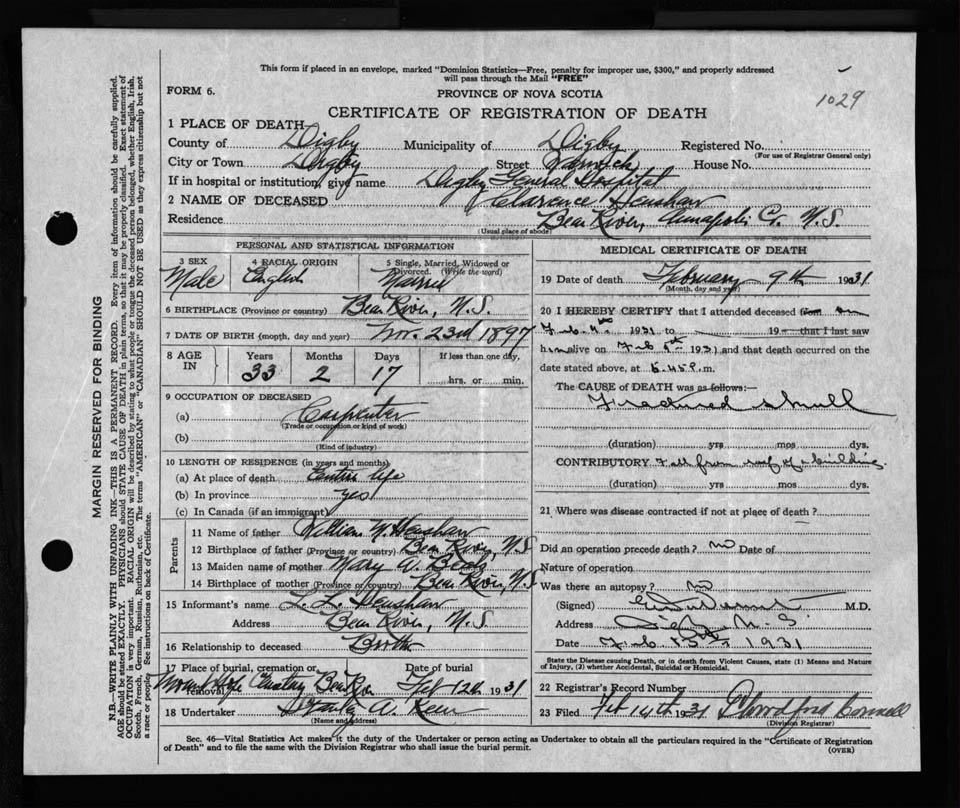 This form if placed in an envelope, marked "Dominion Statistics—Free, penalty for improper use, $300," and properly addressed
will pass through the Mail "FREE"
FORM 6.
PROVINCE OF NOVA SCOTIA
1029
CERTIFICATE OF REGISTRATION OF DEATH
1 PLACE OF DEATH
County of Digby Municipality of Digby Registered No.
(For use of Registrar General only)
City or Town Digby Street Warwick House No.
If in hospital or institution, give name Digby General Hospital
2 NAME OF DECEASED Clarence Henshaw
Residence Bear River, Annapolis Co. N.S.
(Usual place of abode)
PERSONAL AND STATISTICAL INFORMATION
3 SEX Male
4 RACIAL ORIGIN English
5 Single, Married, Widowed or
Divorced. (Write the word)
Married
6 BIRTHPLACE (Province or country) Bear River, N.S.
7 DATE OF BIRTH (month, day and year) Nov. 23rd 1897
8 AGE IN Years 33 Months 2 Days 17 If less than one day, hrs. or min.
9 OCCUPATION OF DECEASED
(a) Carpenter
(Trade or occupation or kind of work)
(b)
(Kind of industry)
10 LENGTH OF RESIDENCE (in years and months)
(a) At place of death Entire life
(b) In province yes
(c) In Canada (if an immigrant)
Parents
11 Name of father William N. Henshaw
12 Birthplace of father (Province or country) Bear River, N.S
13 Maiden name of mother Mary A. Beals
14 Birthplace of mother (Province or country) Bear River, N.S
15 Informant's name L. L. Henshaw
Address Bear River, N.S.
16 Relationship to deceased Brother
17 Place of burial, cremation or removal Mount Hope Cemetery Bear River
Date of burial Feb 12th 1931
18 Undertaker A.
(Name and address)
MEDICAL CERTIFICATE OF DEATH
19 Date of death February 9th 1931
(Month, day and year)
20 I HEREBY CERTIFY that I attended deceased from
Feb. 1931 to 19 that I last saw
him alive on Feb 1931 and that death occurred on the
date stated above, at 5.45 P.m.
The CAUSE of DEATH was as follows:—
Fractured skull
(duration) yrs mos dys.
CONTRIBUTORY Fall from roof of a building.
(duration) yrs. mos. dys.
21 Where was disease contracted if not at place of death?
Did an operation precede death? no Date of
Nature of operation
Was there an autopsy? no
(Signed) M.D.
Address Digby N.S.
Date Feb 1931
State the Disease causing Death, or in death from Violent Causes, state (1) Means and Nature
of Injury, (2) whether Accidental, Suicidal or Homicidal.
22 Registrar's Record Number
23 Filed Feb 14th 1931
(Division Registrar)
Sec. 46—Vital Statistics Act makes it the duty of the Undertaker or person acting as Undertaker to obtain all the particulars required in the "Certificate of Registration
of Death" and to file the same with the Division Registrar who shall issue the burial permit.
(OVER)
MARGIN RESERVED FOR BINDING
N.B.—WRITE PLAINLY WITH UNFADING INK—THIS IS A PERMANENT RECORD. Every item of information should be carefully supplied.
AGE should be stated EXACTLY. PHYSICIANS should STATE CAUSE OF DEATH in plain terms, so that it may be properly classified. Exact statement of
OCCUPATION is very important. RACIAL ORIGIN will be described by stating to what people or tongue the deceased person belonged, whether English, Irish,
Scotch, French, German, Russian, Ruthenian, etc. The terms "AMERICAN" or "CANADIAN" SHOULD NOT BE USED as they express citizenship but not
a race or people. See instructions on back of Certificate.